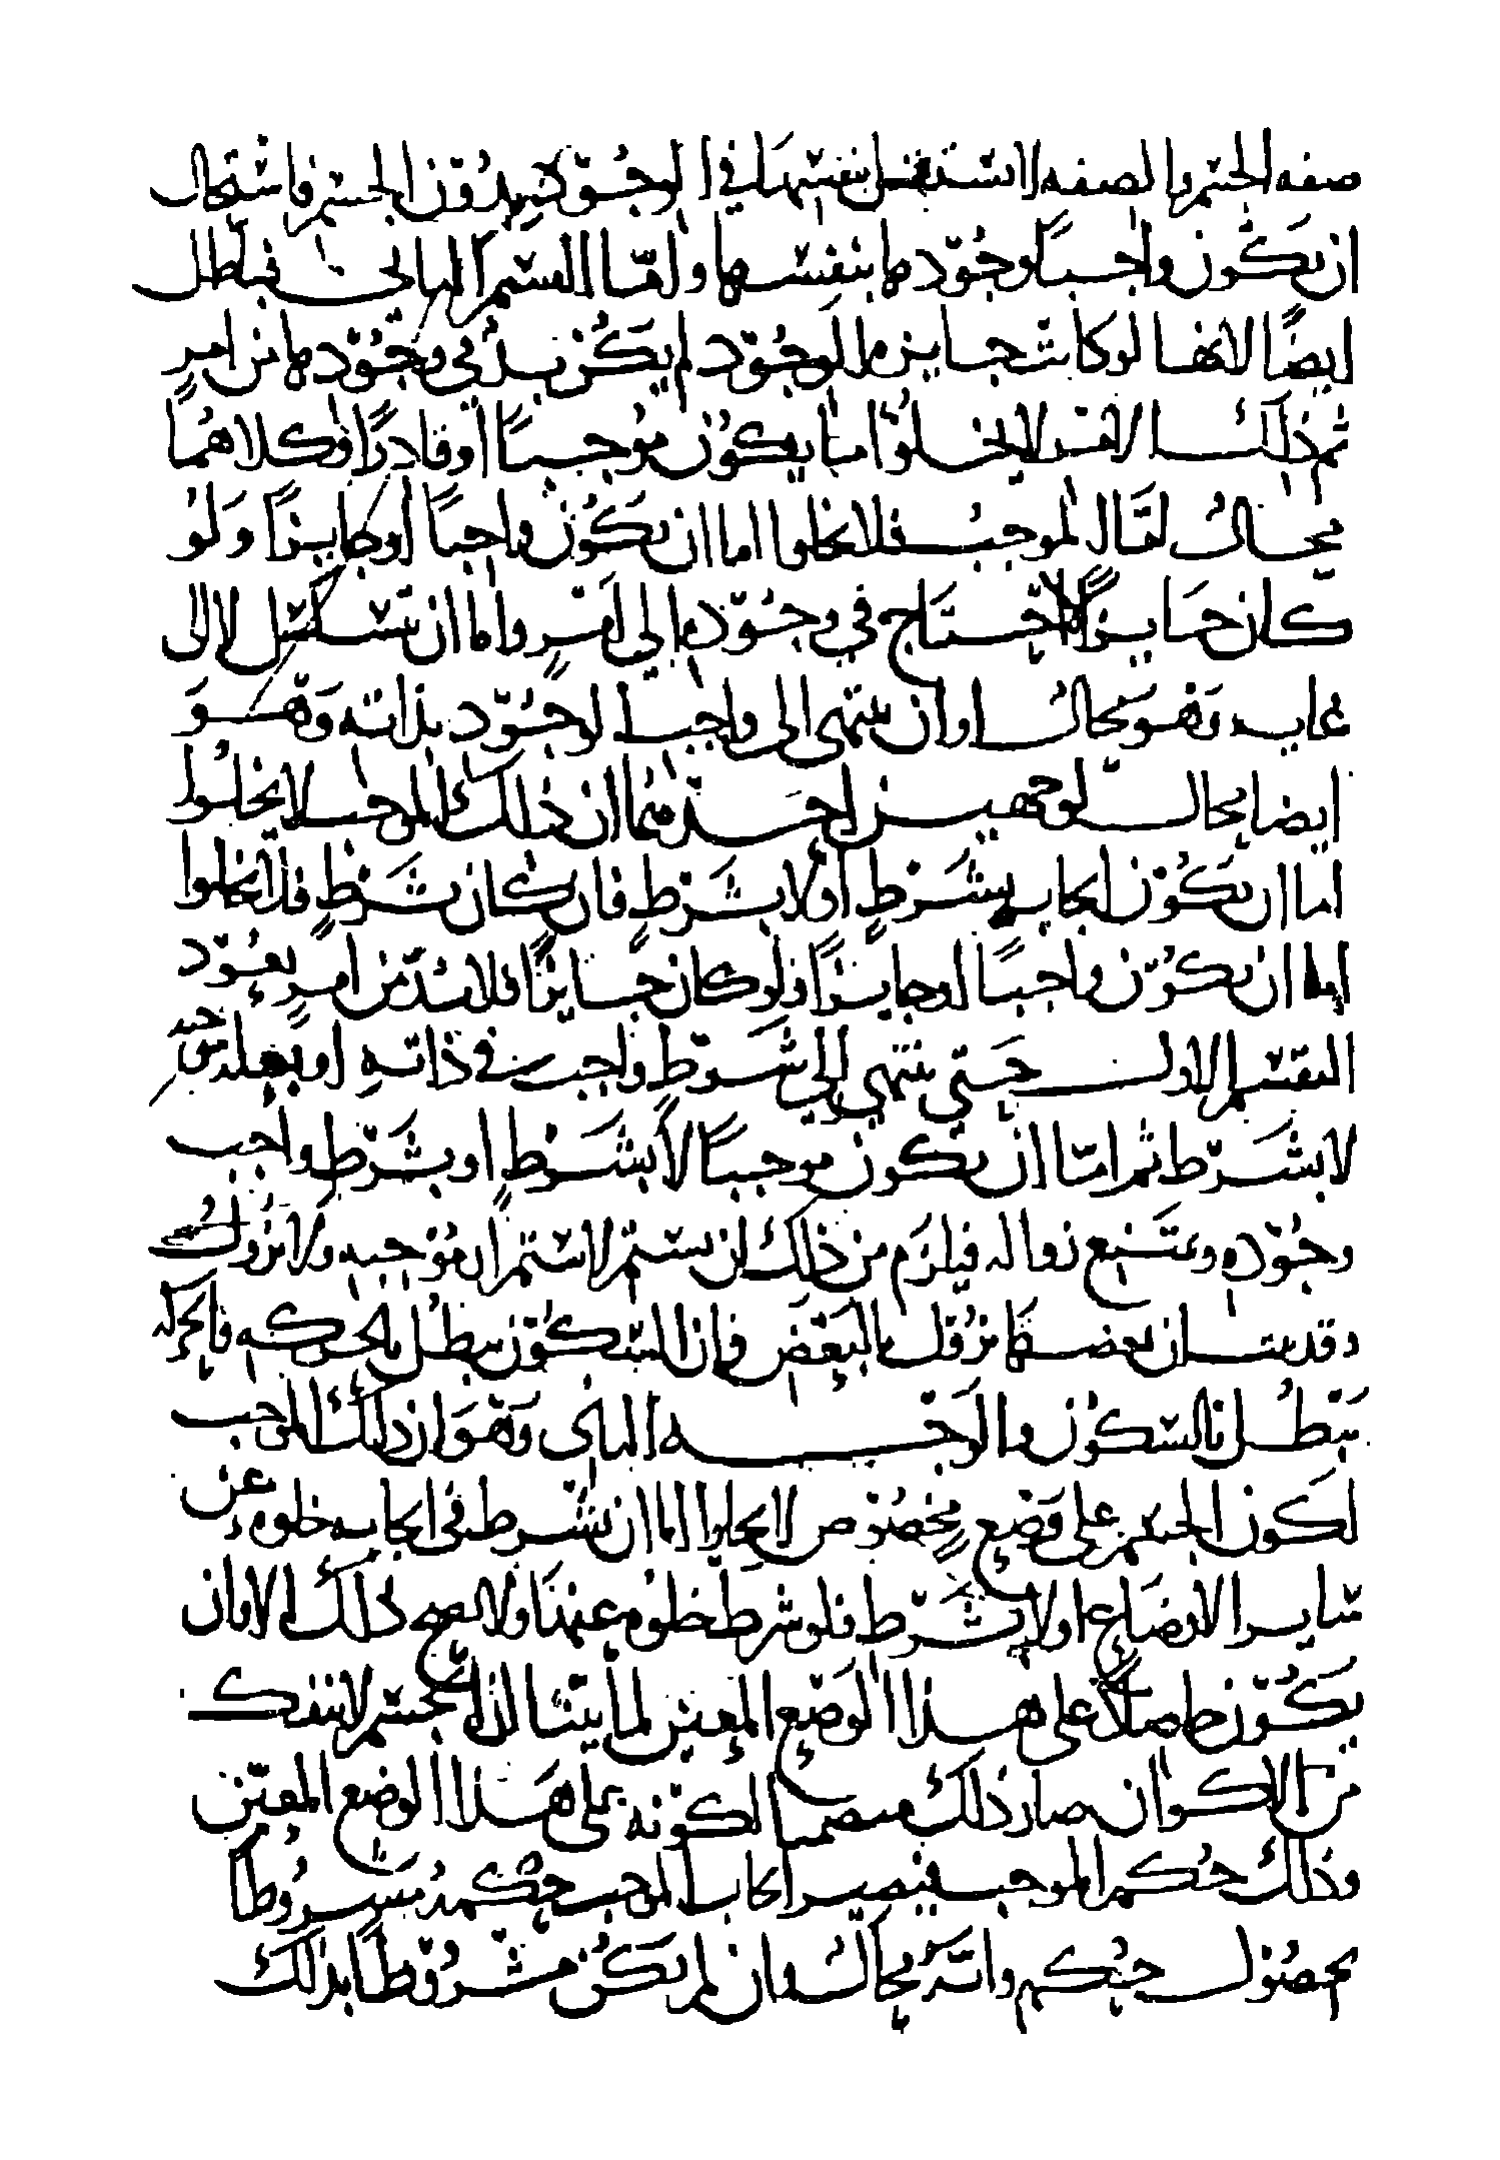 صفه الجسم والصفه لا تستقل بنفسها في الوجود بدون الجسم فاستحال
ان يكون واجبا وجودها بنفسها واما القسم الثاني فباطل
ايضا لانها لو كانت جايزه الوجود لم يكن بد في وجودها من امر
ثم ذلك الامر لا يخلوا اما يكون موجبا او قادرا وكلاهما
محال اما الموجب فلا يخلوا اما ان يكون واجبا او جايزا ولو
كان جايزا لاحتاج في وجوده الي امر واما ان تسلسل لا الى
غايه وهو محال او ان ينتهى الى واجب الوجود بذاته وهو
ايضا محال لوجهين احدهما ان ذلك الموجب لا يخلوا
اما ان يكون ايجابه بشرط او لا بشرط فان كان بشرط فلا يخلوا
اما ان يكون واجبا او جايزا ولو كان جايزا فلا بد من امر يعود
التقسيم الاول حتي ينتهي الي شرط واجب في ذاته او
لا بشرط ثم اما ان يكون موجبا لا بشرط او بشرط واجب
وجوده ويمتنع زواله فيلزم من ذلك ان يستمر لاستمرار موجبه ولا يزول
وقد بينا ان بعضها يزول بالبعض فان السكون يبطل بالحركه والحركه
تبطل بالسكون والوجه الثاني وهو ان ذلك الموجب
لكون الجسم على وضع مخصوص لا يخلوا اما ان يشرط في ايجابه خلوه عن
ساير الاوضاع او لا يشرط فلو شرط خلوه عنها ولا يصح ذلك الا بان
يكون حاصلا على هذا الوضع المعين لما بينا ان الجسم لا ينفك
من الاكوان صار ذلك لكونه على هذا الوضع المعين
وذلك حكم الموجب فيصير ايجاب الموجب حكمه مشروطا
بحصول حكمه وانه محال وان لم يكن مشروطا بذلك